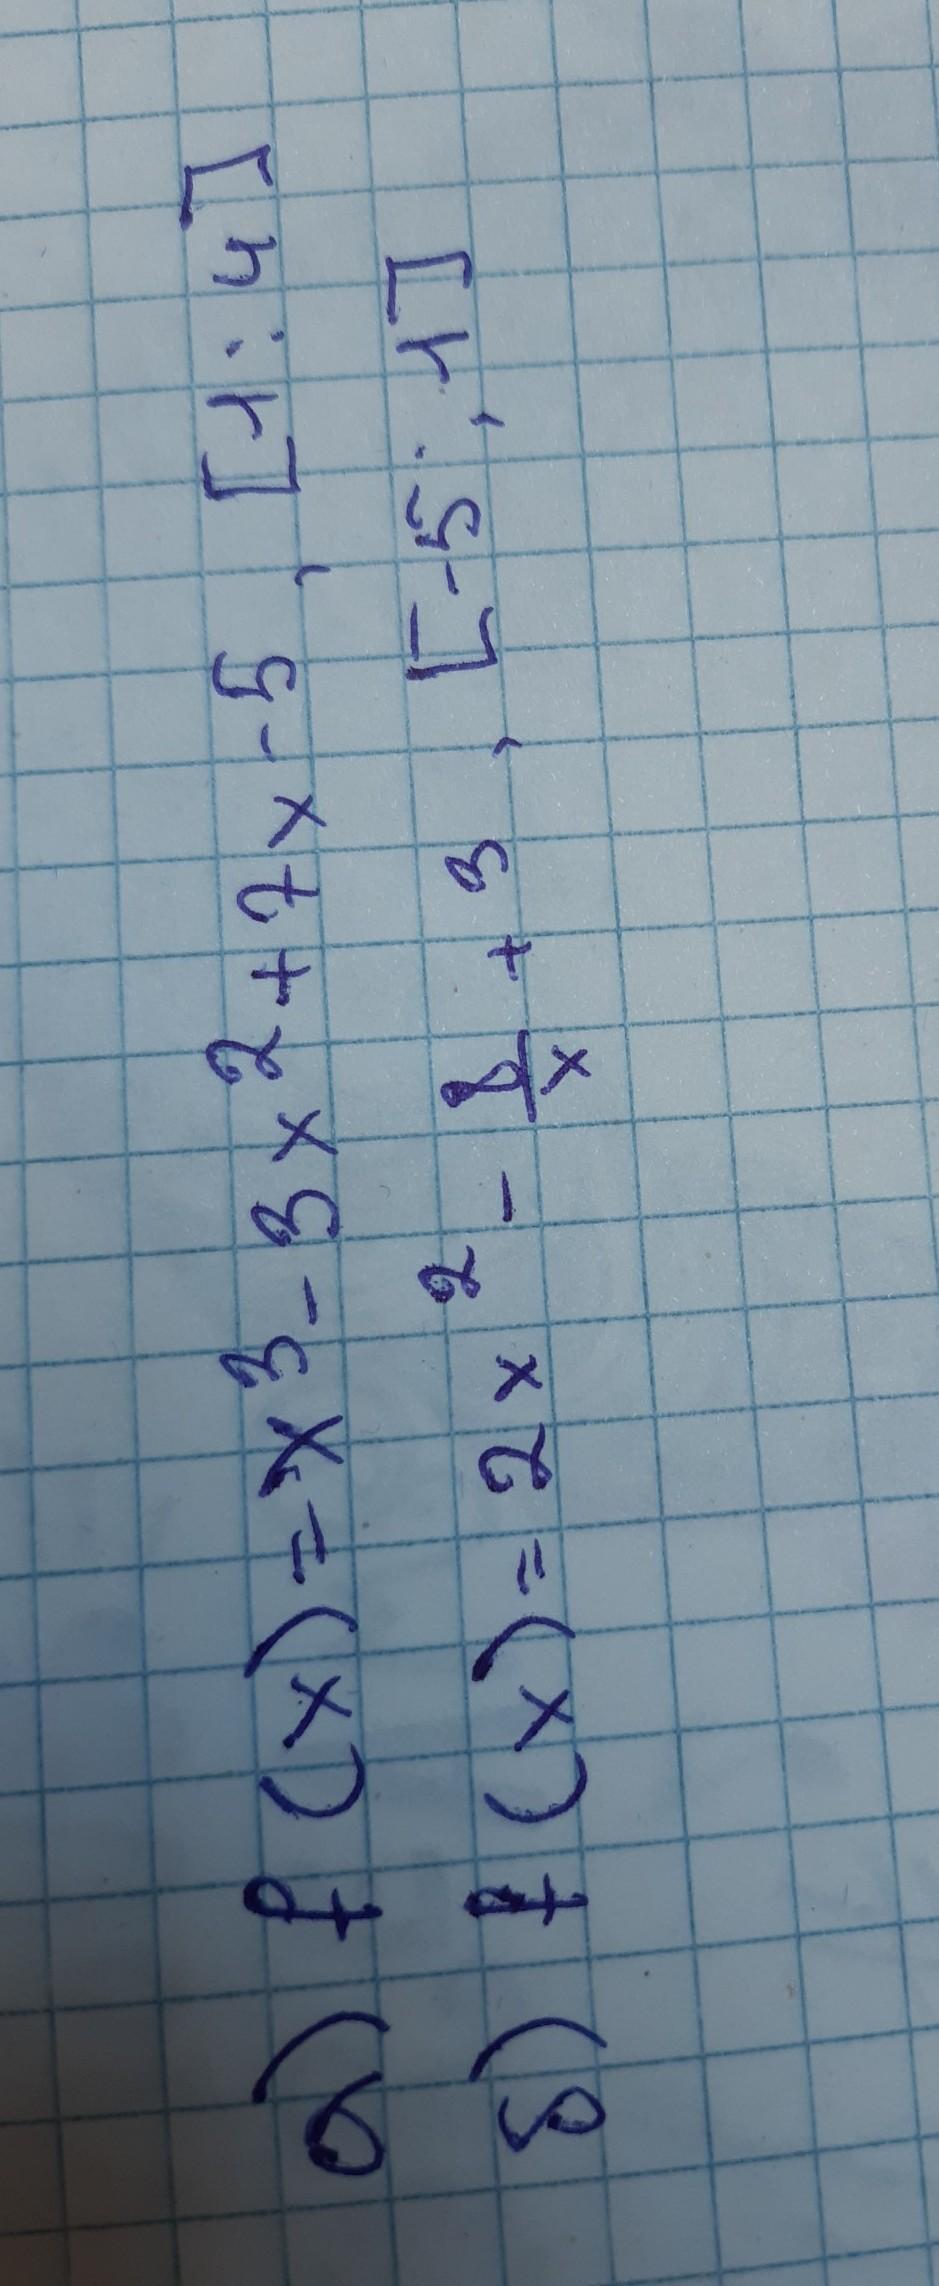 а) f(x)=x³-3x²+7x-5, [1:4]
б) f(x)=2x²-8/x+3, [-5;1]